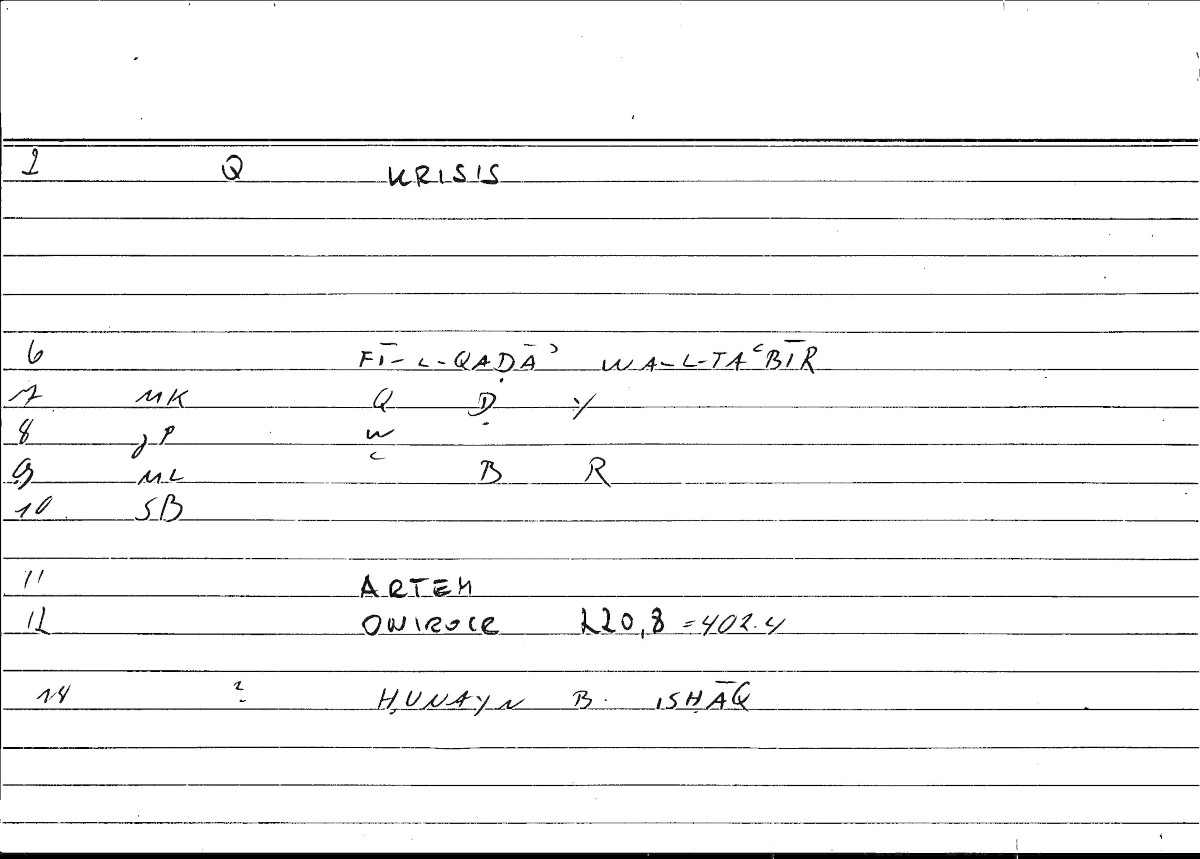 1 Q KRISIS
6 FĪ-L-QAḌĀʾ WA-L-TAʿBĪR
7 MK Q Ḍ Y
8 JP W
9 ML ʿ B R
10 SB
11 ARTEM
12 ONIROCR 220,8 = 402.4
14 ? ḤUNAYN B. ISḤĀQ